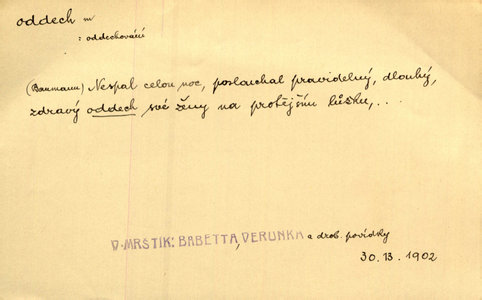 oddech m
: oddechování
(Baumann) Nespal celou noc, poslouchal pravidelný, dlouhý,
zdravý oddech své ženy na protějším lůžku,...
V. MRŠTÍK: BABETTA, VERUNKA a drob. povídky
30.13.1902